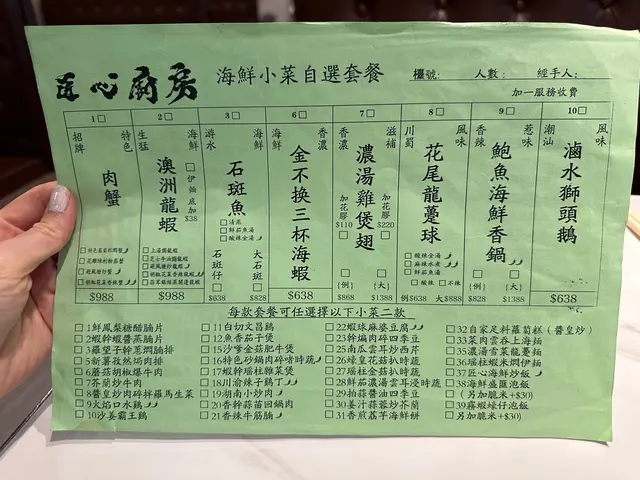 匠心廚房 海鮮小菜自選套餐 檯號: 人數: 經手人:
加一服務收費
1□ 2□ 3□ 6□ 7□ 8□ 9□ 10□
招牌 特色 肉蟹 $988
生猛 海鮮 澳洲龍蝦 □伊麵底加$38 $988
游水 海鮮 石斑魚
□清蒸
□鮮茄魚湯
□酸辣魚湯
石斑仔 □ $638
大石斑 □ $828
香濃 金不換三杯海蝦 $638
香濃 滋補 濃湯雞煲翅
加花膠$110 加花膠$220
□{例} $868 □{大} $1388
川蜀 風味 花尾龍躉球
□酸辣魚湯
□麻辣水煮
□鮮茄魚湯
□酸辣 □不辣
例$638 大$868
香辣 惹味 鮑魚海鮮香鍋
□{例} $828 □{大} $1388
潮汕 風味 滷水獅頭鵝 $638
每款套餐可任選擇以下小菜二款
□1鮮鳳梨糖醋腩片
□2蝦幹蝦醬蒸腩片
□3羅望子幹蔥焗腩排
□4新薯孜然焗肉排
□6蘑菇胡椒爆牛肉
□7芥蘭炒牛肉
□8醬皇炒肉碎拌羅馬生菜
□9火焰口水鷄
□10沙姜霸王鷄
□11白切文昌鷄
□12魚香茄子煲
□15沙爹金菇肥牛煲
□16特色炒鍋肉碎啫時蔬
□17蝦幹瑤柱雜菜煲
□18川渝辣子鷄丁
□19湖南小炒肉
□20香幹蒜苗回鍋肉
□21香辣牛筋腩
□22蝦球麻婆豆腐
□23幹煸肉碎四季豆
□25南瓜雲耳炒西芹
□26蠔皇花菇扒時蔬
□27瑤柱金菇扒時蔬
□28鮮茄濃湯雲耳浸時蔬
□29拍蒜醬油四季豆
□30姜汁蒜蓉炒芥蘭
□31香煎荔芋海鮮餅
□32自家足料蘿蔔糕(醬皇炒)
□33菜肉雲吞上海麵
□35濃湯雲菜龍躉麵
□36瑤柱蝦米燜伊麵
□37匠心海鮮炒飯
□38海鮮盛匯泡飯
(另加脆米+$30)
□39霧蝦蠔仔泡飯
□(另加脆米+$30)